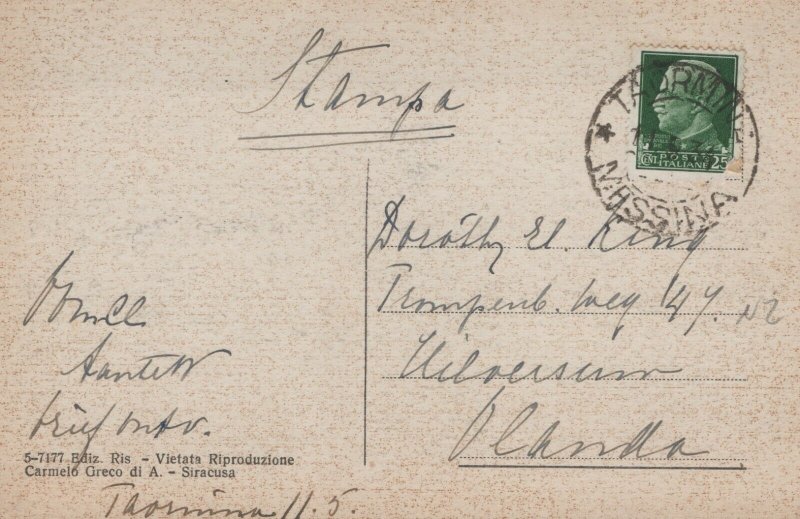 Stampa
TAORMINA
MESSINA
POSTE
ITALIANE
CENT. 25
Dorothy El. King
Trompenb. weg 47. NZ
Hilversum
Olanda
5-7177 Ediz. Ris - Vietata Riproduzione
Carmelo Greco di A. - Siracusa
Taormina 11.5.